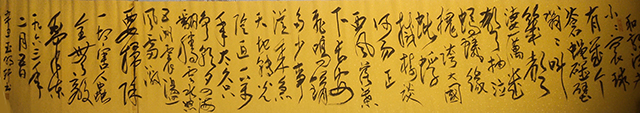 小小寰球
有几个
苍蝇碰壁
嗡嗡叫
几声
凄厉几
声抽泣
蚂蚁缘
槐夸大国
蚍蜉
撼树谈
何易正
西风落叶
下长安
飞鸣镝
多少事
从来急
天地转光
阴迫一万
年太久
只争朝夕四海
翻腾云水怒
五洲震荡
风雷激
要扫除
一切害人虫
全无敌
一九六三年
二月五日